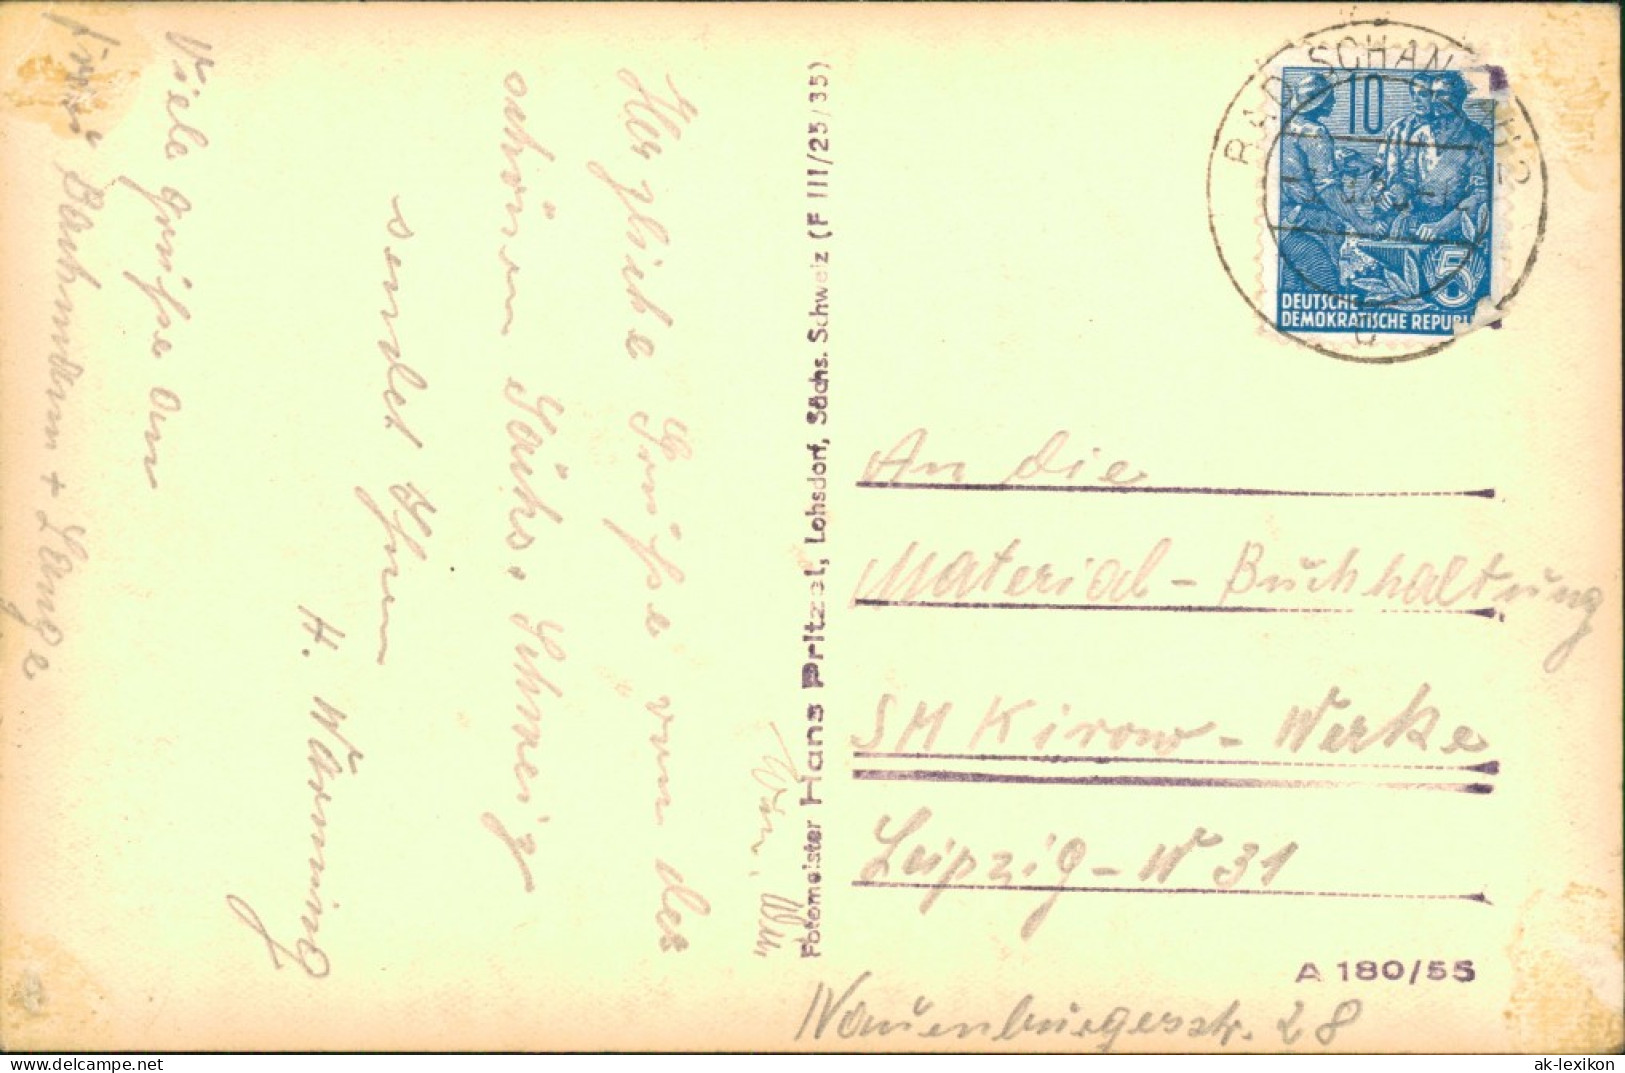 Herzliche Grüße von der
schönen Sächs. Schweiz
sendet Ihnen
H. Wärmning
Viele Grüße an
Lange
Fotomeister Hans Pritzel, Lohsdorf, Sächs. Schweiz (F III/25/35)
BAD SCHANDAU 2
c
10
5
DEUTSCHE
DEMOKRATISCHE REPUBL
An die
Material-Buchhaltung
SM Kirow-Werke
Leipzig-W 31
A 180/55
Naumburgerstr. 28
delcampe.net
ak-lexikon